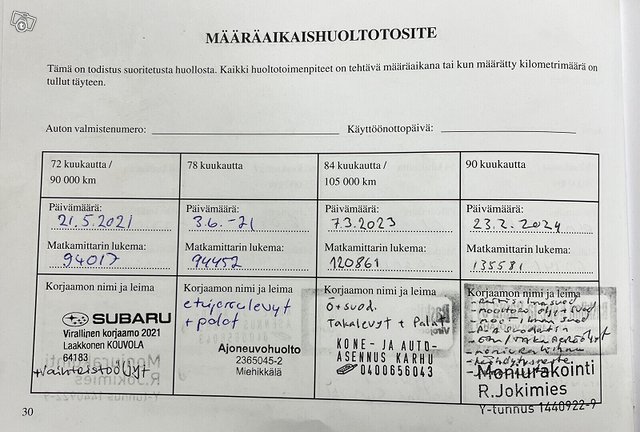 MÄÄRÄAIKAISHUOLTOTOSITE
Tämä on todistus suoritetusta huollosta. Kaikki huoltotoimenpiteet on tehtävä määräaikana tai kun määrätty kilometrimäärä on
tullut täyteen.
Auton valmistenumero:
Käyttöönottopäivä:
72 kuukautta /
90 000 km
Päivämäärä:
21.5.2021
Matkamittarin lukema:
94017
Korjaamon nimi ja leima
SUBARU
Virallinen korjaamo 2021
Laakkonen KOUVOLA
64183
78 kuukautta
Päivämäärä:
3.6.-21
Matkamittarin lukema:
94452
Korjaamon nimi ja leima
etujarrulevyt
+ palat
Ajoneuvohuolto
2365045-2
Miehikkälä
84 kuukautta /
105 000 km
Päivämäärä:
7.3.2023
Matkamittarin lukema:
120861
Korjaamon nimi ja leima
Ö+suod.
Takalevyt + Palat
KONE- JA AUTO-
ASENNUS KARHU
0400656043
90 kuukautta
Päivämäärä:
23.2.2024
Matkamittarin lukema:
135581
Korjaamon nimi ja leima
Moniurakointi
R.Jokimies
Y-tunnus 1440922-9
30